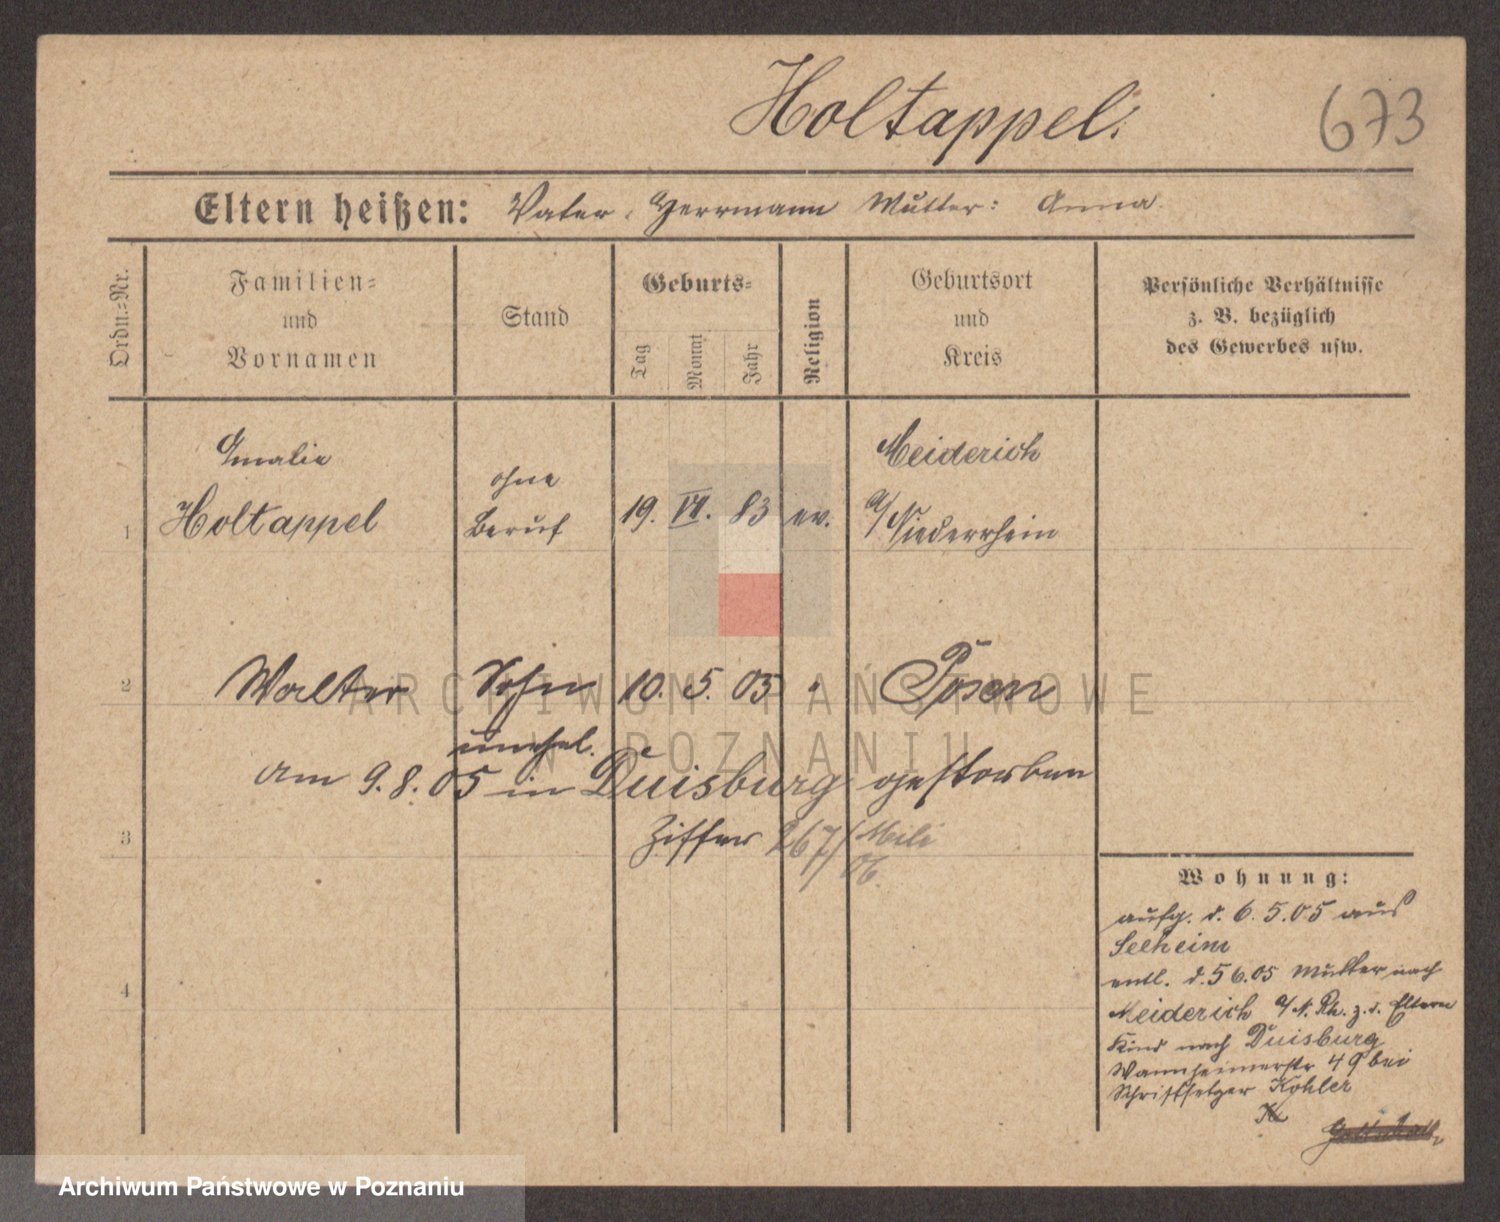 Holtappel.
673
Eltern heißen: Vater: Herrmann Mutter: Anna.
Ordn.-Nr.
Familien-
und
Vornamen
Stand
Geburts-
Tag
Monat
Jahr
Religion
Geburtsort
und
Kreis
Persönliche Verhältnisse
z. B. bezüglich
des Gewerbes usw.
1
Amalie
Holtappel
ohne
Beruf
19. VI. 83
ev.
Meiderich
a/Niederrhein
2
Walter
Sohn
unehel.
10. 5. 05
"
Posen
am 9. 8. 05 in Duisburg gestorben
3
Ziffer 267/
06.
4
Wohnung:
aufg. d. 6. 5. 05 aus
Seeheim
entl. d. 5 6. 05 Mutter nach
Meiderich a/N. Rh. z. d. Eltern
Kind nach Duisburg
Wannheimerstr 49 bei
Schriftsetzer Kohler
ARCHIWUM PAŃSTWOWE
W POZNANIU
Archiwum Państwowe w Poznaniu